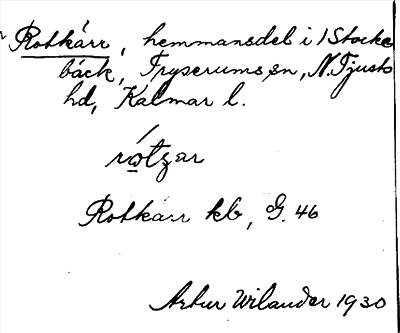 Rotkärr, hemmansdel i 1 Stocke
bäck, Tryserums sn, N. Tjusts
hd, Kalmar l.
rótꞩar
Rotkärr kb, G. 46
Artur Wilander 1930